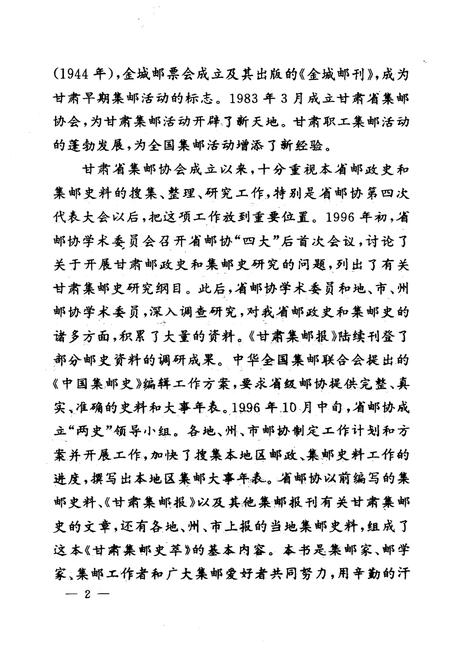 (1944年)，金城邮票会成立及其出版的《金城邮刊》，成为
甘肃早期集邮活动的标志。1983年3月成立甘肃省集邮
协会，为甘肃集邮活动开辟了新天地。甘肃职工集邮活动
的蓬勃发展，为全国集邮活动增添了新经验。
甘肃省集邮协会成立以来，十分重视本省邮政史和
集邮史料的搜集、整理、研究工作，特别是省邮协第四次
代表大会以后，把这项工作放到重要位置。1996年初，省
邮协学术委员会召开省邮协“四大”后首次会议，讨论了
关于开展甘肃邮政史和集邮史研究的问题，列出了有关
甘肃集邮史研究纲目。此后，省邮协学术委员和地、市、州
邮协学术委员，深入调查研究，对我省邮政史和集邮史的
诸多方面，积累了大量的资料。《甘肃集邮报》陆续刊登了
部分邮史资料的调研成果。中华全国集邮联合会提出的
《中国集邮史》编辑工作方案，要求省级邮协提供完整、真
实、准确的史料和大事年表。1996年10月中旬，省邮协成
立“两史”领导小组。各地、州、市邮协制定工作计划和方
案并开展工作，加快了搜集本地区邮政、集邮史料工作的
进度，撰写出本地区集邮大事年表。省邮协以前编写的集
邮史料、《甘肃集邮报》以及其他集邮报刊有关甘肃集邮
史的文章，还有各地、州、市上报的当地集邮史料，组成了
这本《甘肃集邮史萃》的基本内容。本书是集邮家、邮学
家、集邮工作者和广大集邮爱好者共同努力，用辛勤的汗
— 2 —